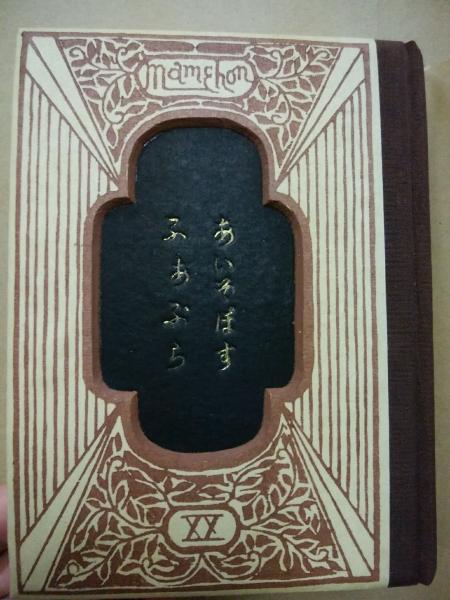 mamehon
あいそぽす
ふあぶら
XX